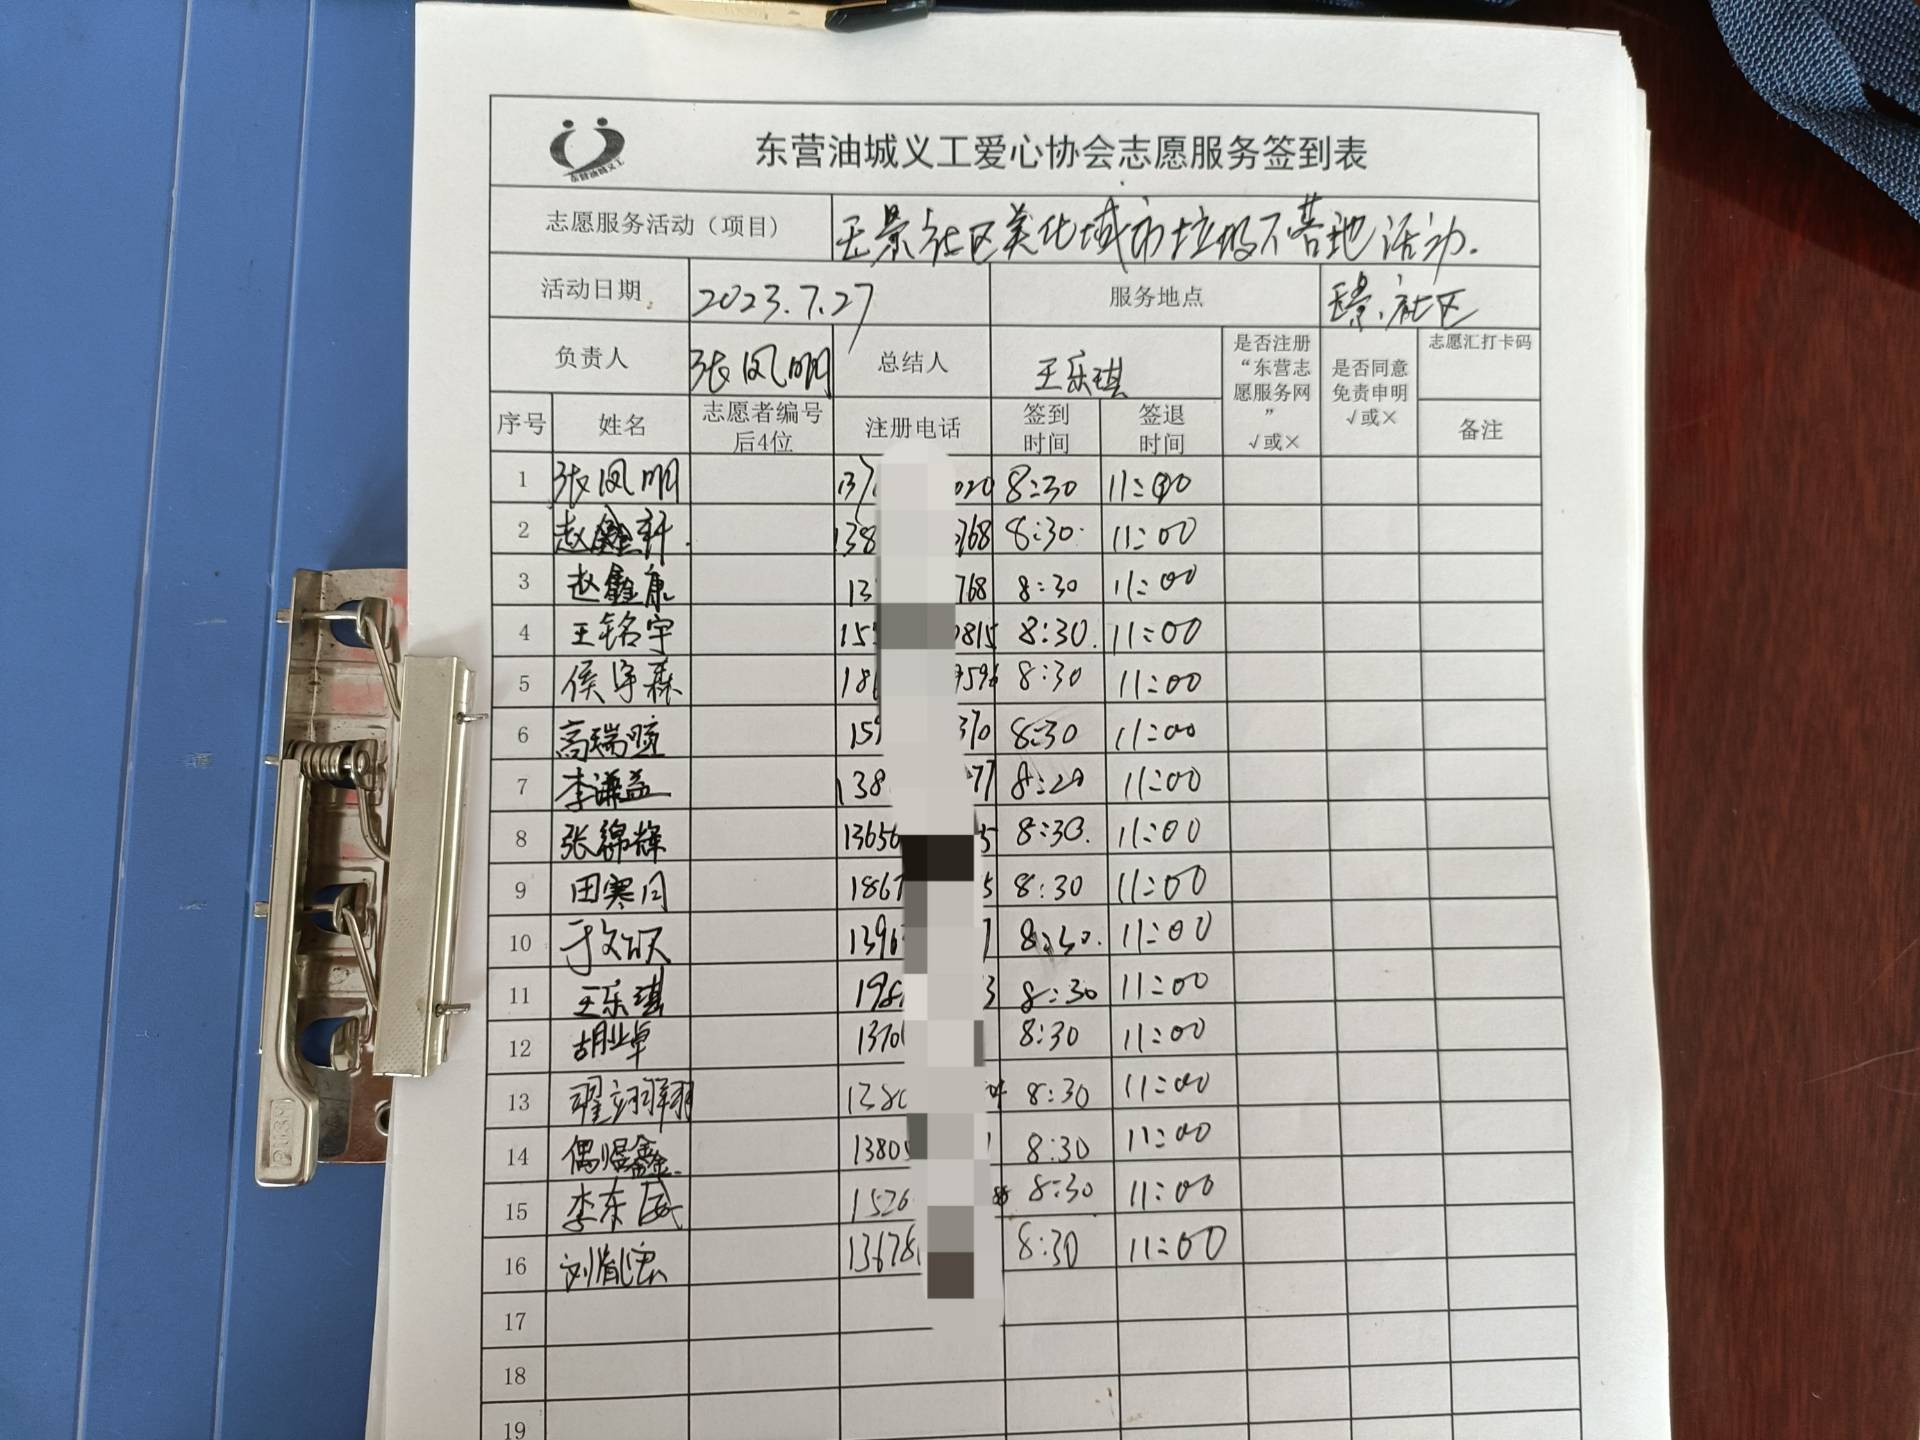 东营油城义工
东营油城义工爱心协会志愿服务签到表
志愿服务活动（项目） 王景社区美化城市垃圾不落地活动.
活动日期 2023.7.27 服务地点 王景.社区
负责人 张凤明 总结人 王乐琪 是否注册“东营志愿服务网” √或× 是否同意免责申明 √或× 志愿汇打卡码
序号 姓名 志愿者编号后4位 注册电话 签到时间 签退时间 备注
1 张凤明 137 020 8:30 11:00
2 赵鑫轩. 138 768 8:30 11:00
3 赵鑫康 13 768 8:30 11:00
4 王铭宇 15 0815 8:30. 11:00
5 侯宇森 18 959 8:30 11:00
6 高瑞暄 159 370 8:30 11:00
7 李谦益 138 77 8:20 11:00
8 张锦辉 13656 5 8:30. 11:00
9 田寒月 1867 5 8:30 11:00
10 于文颂 1396 7 8:30. 11:00
11 王乐琪 198 3 8:30 11:00
12 胡业卓 1370 8:30 11:00
13 翟立翔 1380 04 8:30 11:00
14 偶煜鑫. 13805 1 8:30 11:00
15 李东威 1526 8:30 11:00
16 刘胤宏 13678 8:30 11:00
17
18
19